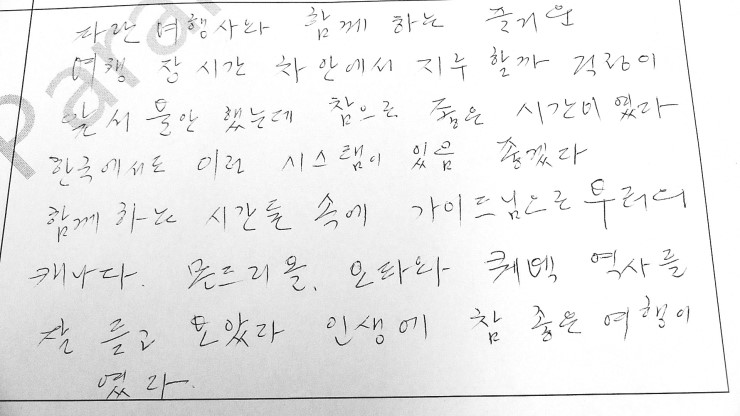 파란여행사와 함께 하는 즐거운
여행 장시간 차안에서 지루 할까 걱정이
앞서 불안 했는데 참으로 좋은 시간이 였다
한국에서도 이런 시스템이 있음 좋겠다
함께 하는 시간들 속에 가이드님으로 부터의
캐나다. 몬트리올. 오타와 퀘백 역사를
잘 듣고 보았다 인생에 참 좋은 여행이
였다.
Para